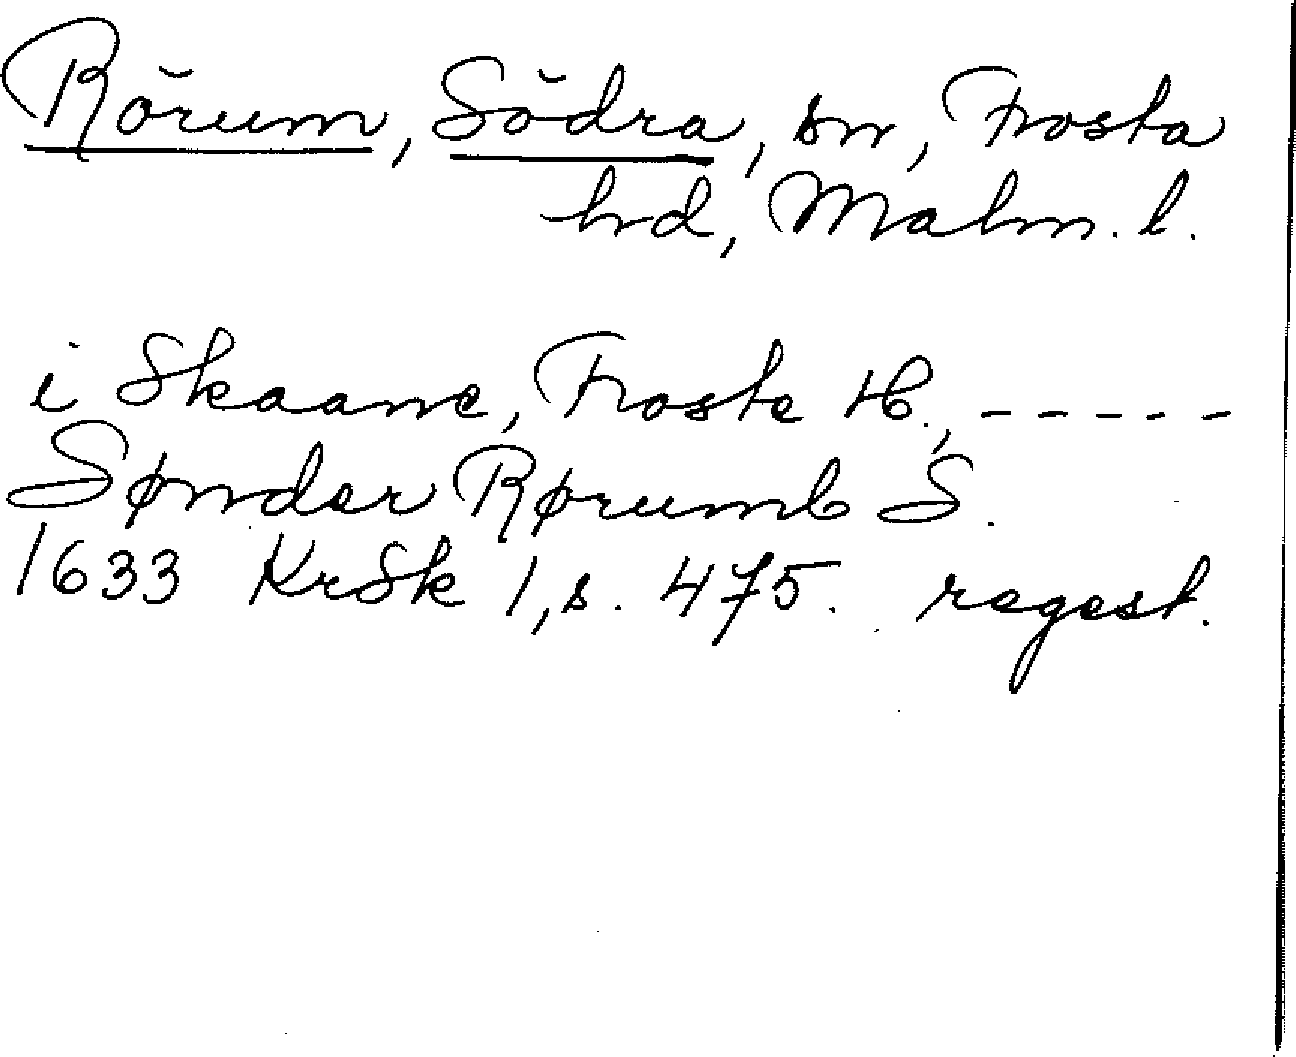 Rörum, Södra, sn, Frosta
hd, Malm. l.
i Skaane, Froste H., -----
Sønder Rørumb S.
1633 KrSk 1, s. 475. regest.